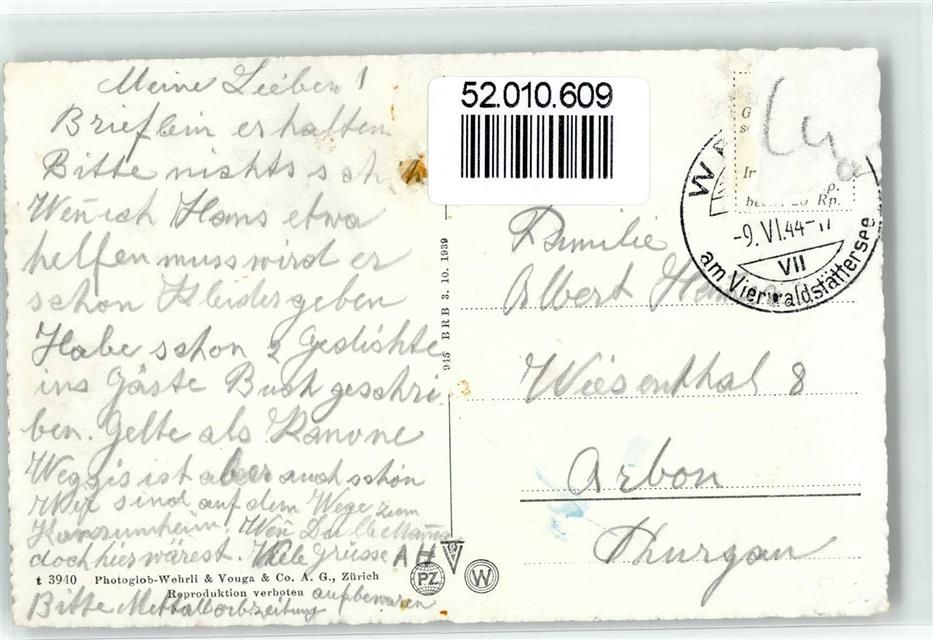 Meine Lieben!
Brieflein erhalten
Bitte nichts sch
Wen̄ ich Hans etwa
helfen muss wird er
schon Kleider geben
Habe schon 2 Gedichte
ins Gäste Buch geschri
ben. Gelte als Kanone
Weggis ist aber auch schön
Wir sind auf dem Wege zum
Konsumheim. Wen̄ Du
doch hier wärest. Viele Grüsse AH
t 3940 Photoglob-Wehrli & Vouga & Co. A. G., Zürich
Reproduktion verboten
Bitte aufbewaren
52.010.609
915 BRB 3. 10. 1939
PZ
W
Familie
Albert
Wiesenthal 8
Arbon
Thurgau
-9.VI.44-
VII
am Vierwaldstättersee
Rp.